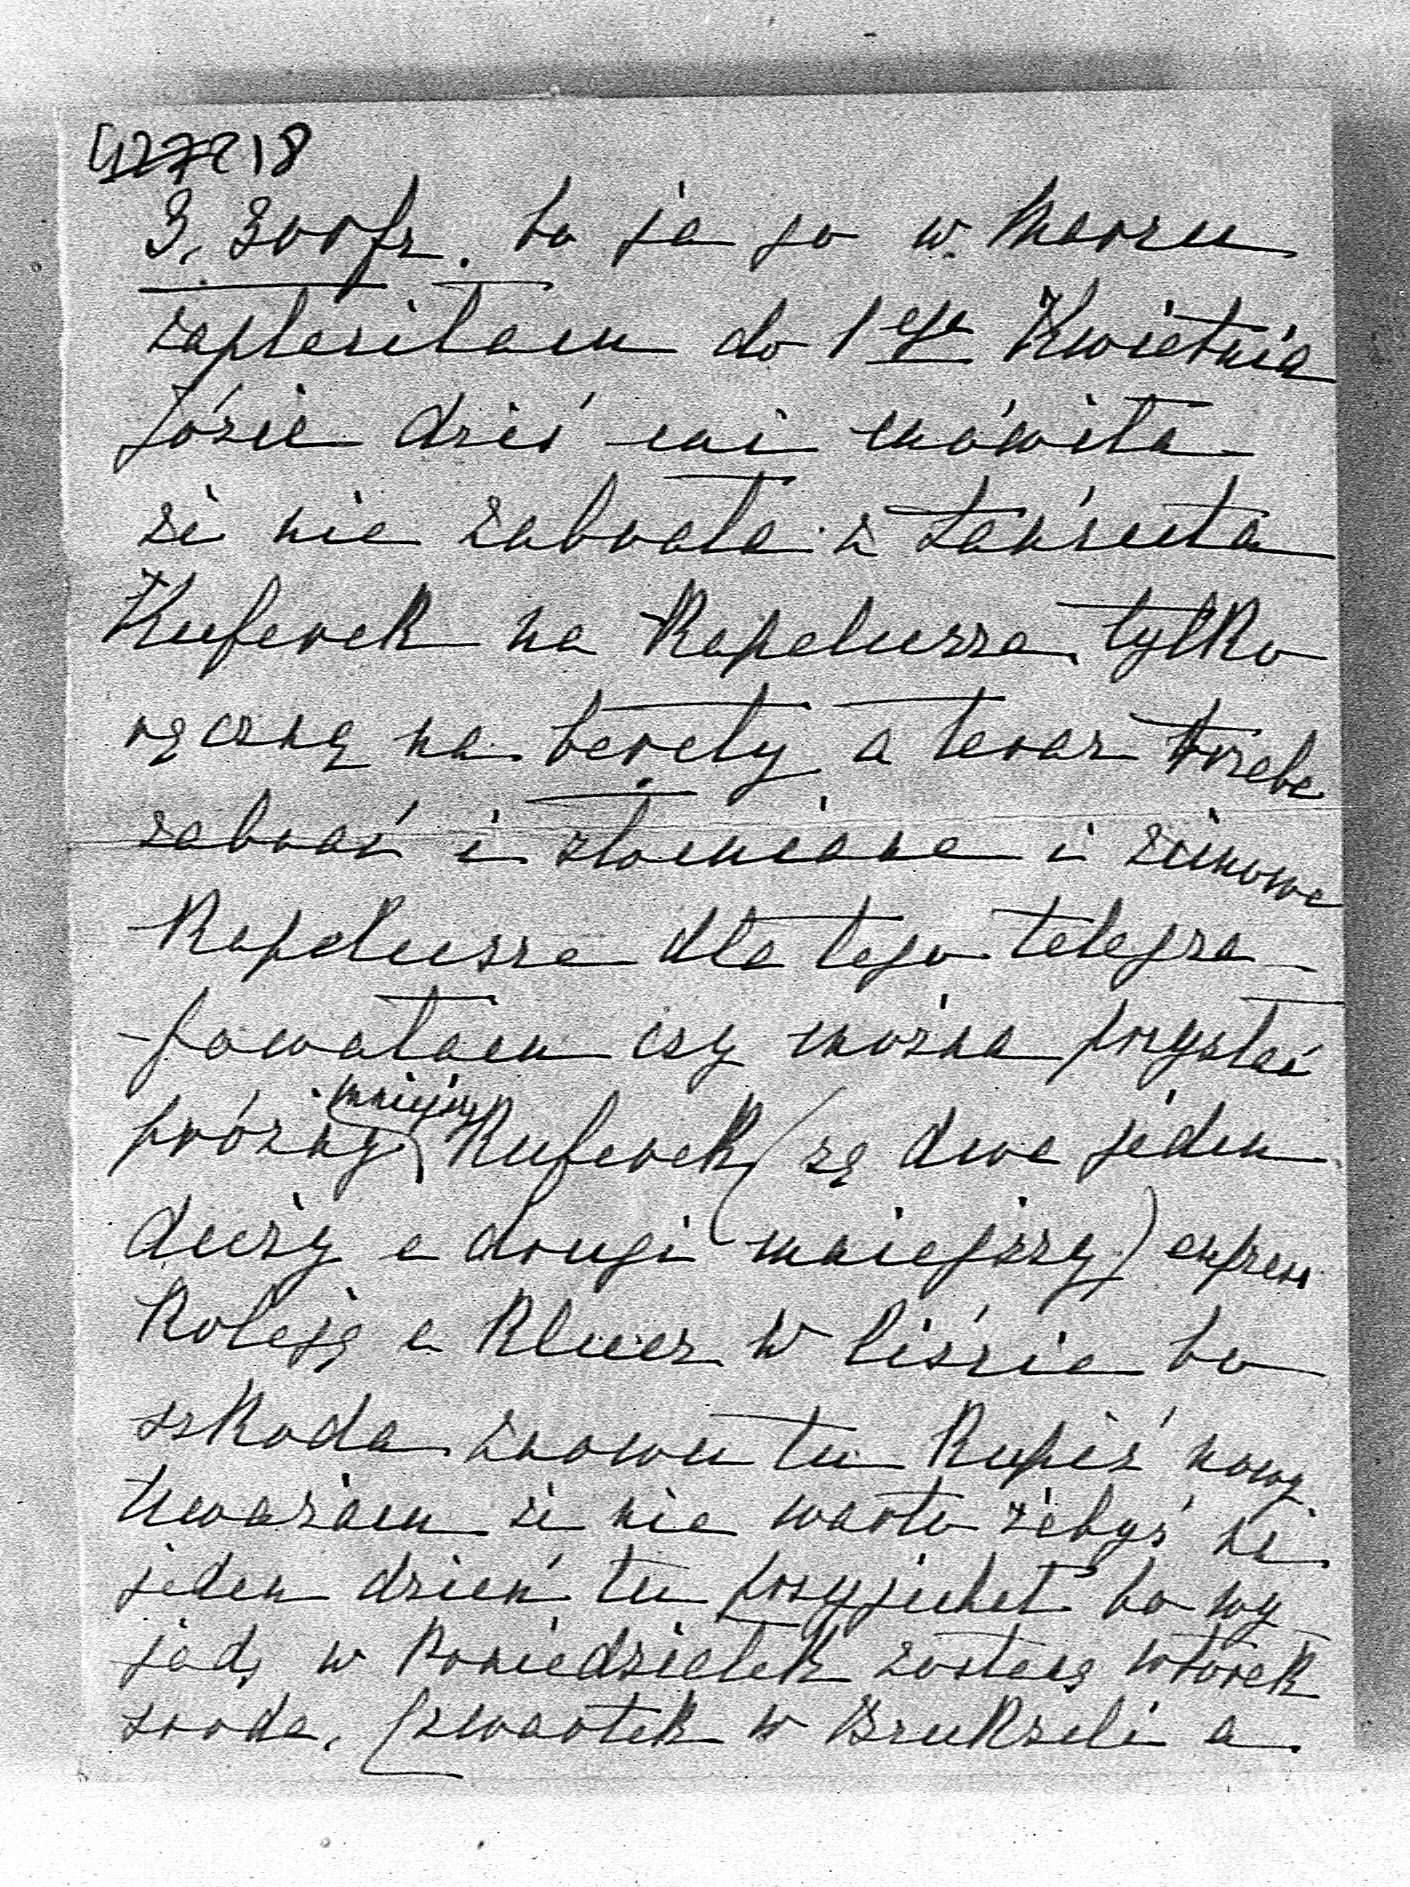 218
3.300 fr. bo ja go w Marzu
zapłaciłam do 1ego Kwietnia
Józie dziś mi mówiła
że nie zabrała z Łańcuta
Kuferek na Kapelusza tylko
ręczną na berety a teraz trzeba
zabrać i słomiane i zimowe
Kapelusze dla tego telegra-
-fowałam czy można przysłać
próżny mniejszy Kuferek (są dwa jeden
duży a drugi mniejszy) express
Koleją a Klucz w liście bo
szkoda znowu tu Kupić nowy
Uważam że nie warto żebyś na
jeden dzień tu przyjechał bo wy
jadę w Poniedziałek zostanę wtorek
sroda, Czwartek w Brukseli a